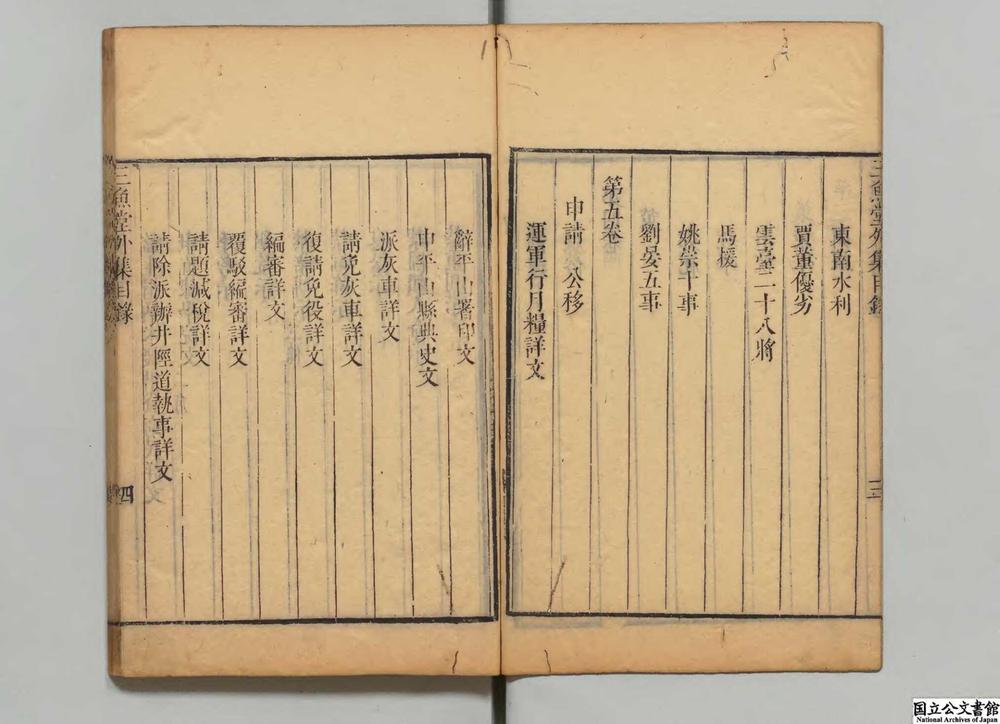 三魚堂外集目錄
三
東南水利
賈董優劣
雲臺二十八將
馬援
姚崇十事
劉晏五事
第五卷
申請 公移
運軍行月糧詳文
辭平山署印文
申平山縣典史文
派灰車詳文
請免灰車詳文
復請免役詳文
編審詳文
覆駁編審詳文
請題減稅詳文
請除派辦井陘道執事詳文
三魚堂外集目錄
四
国立公文書館
National Archives of Japan